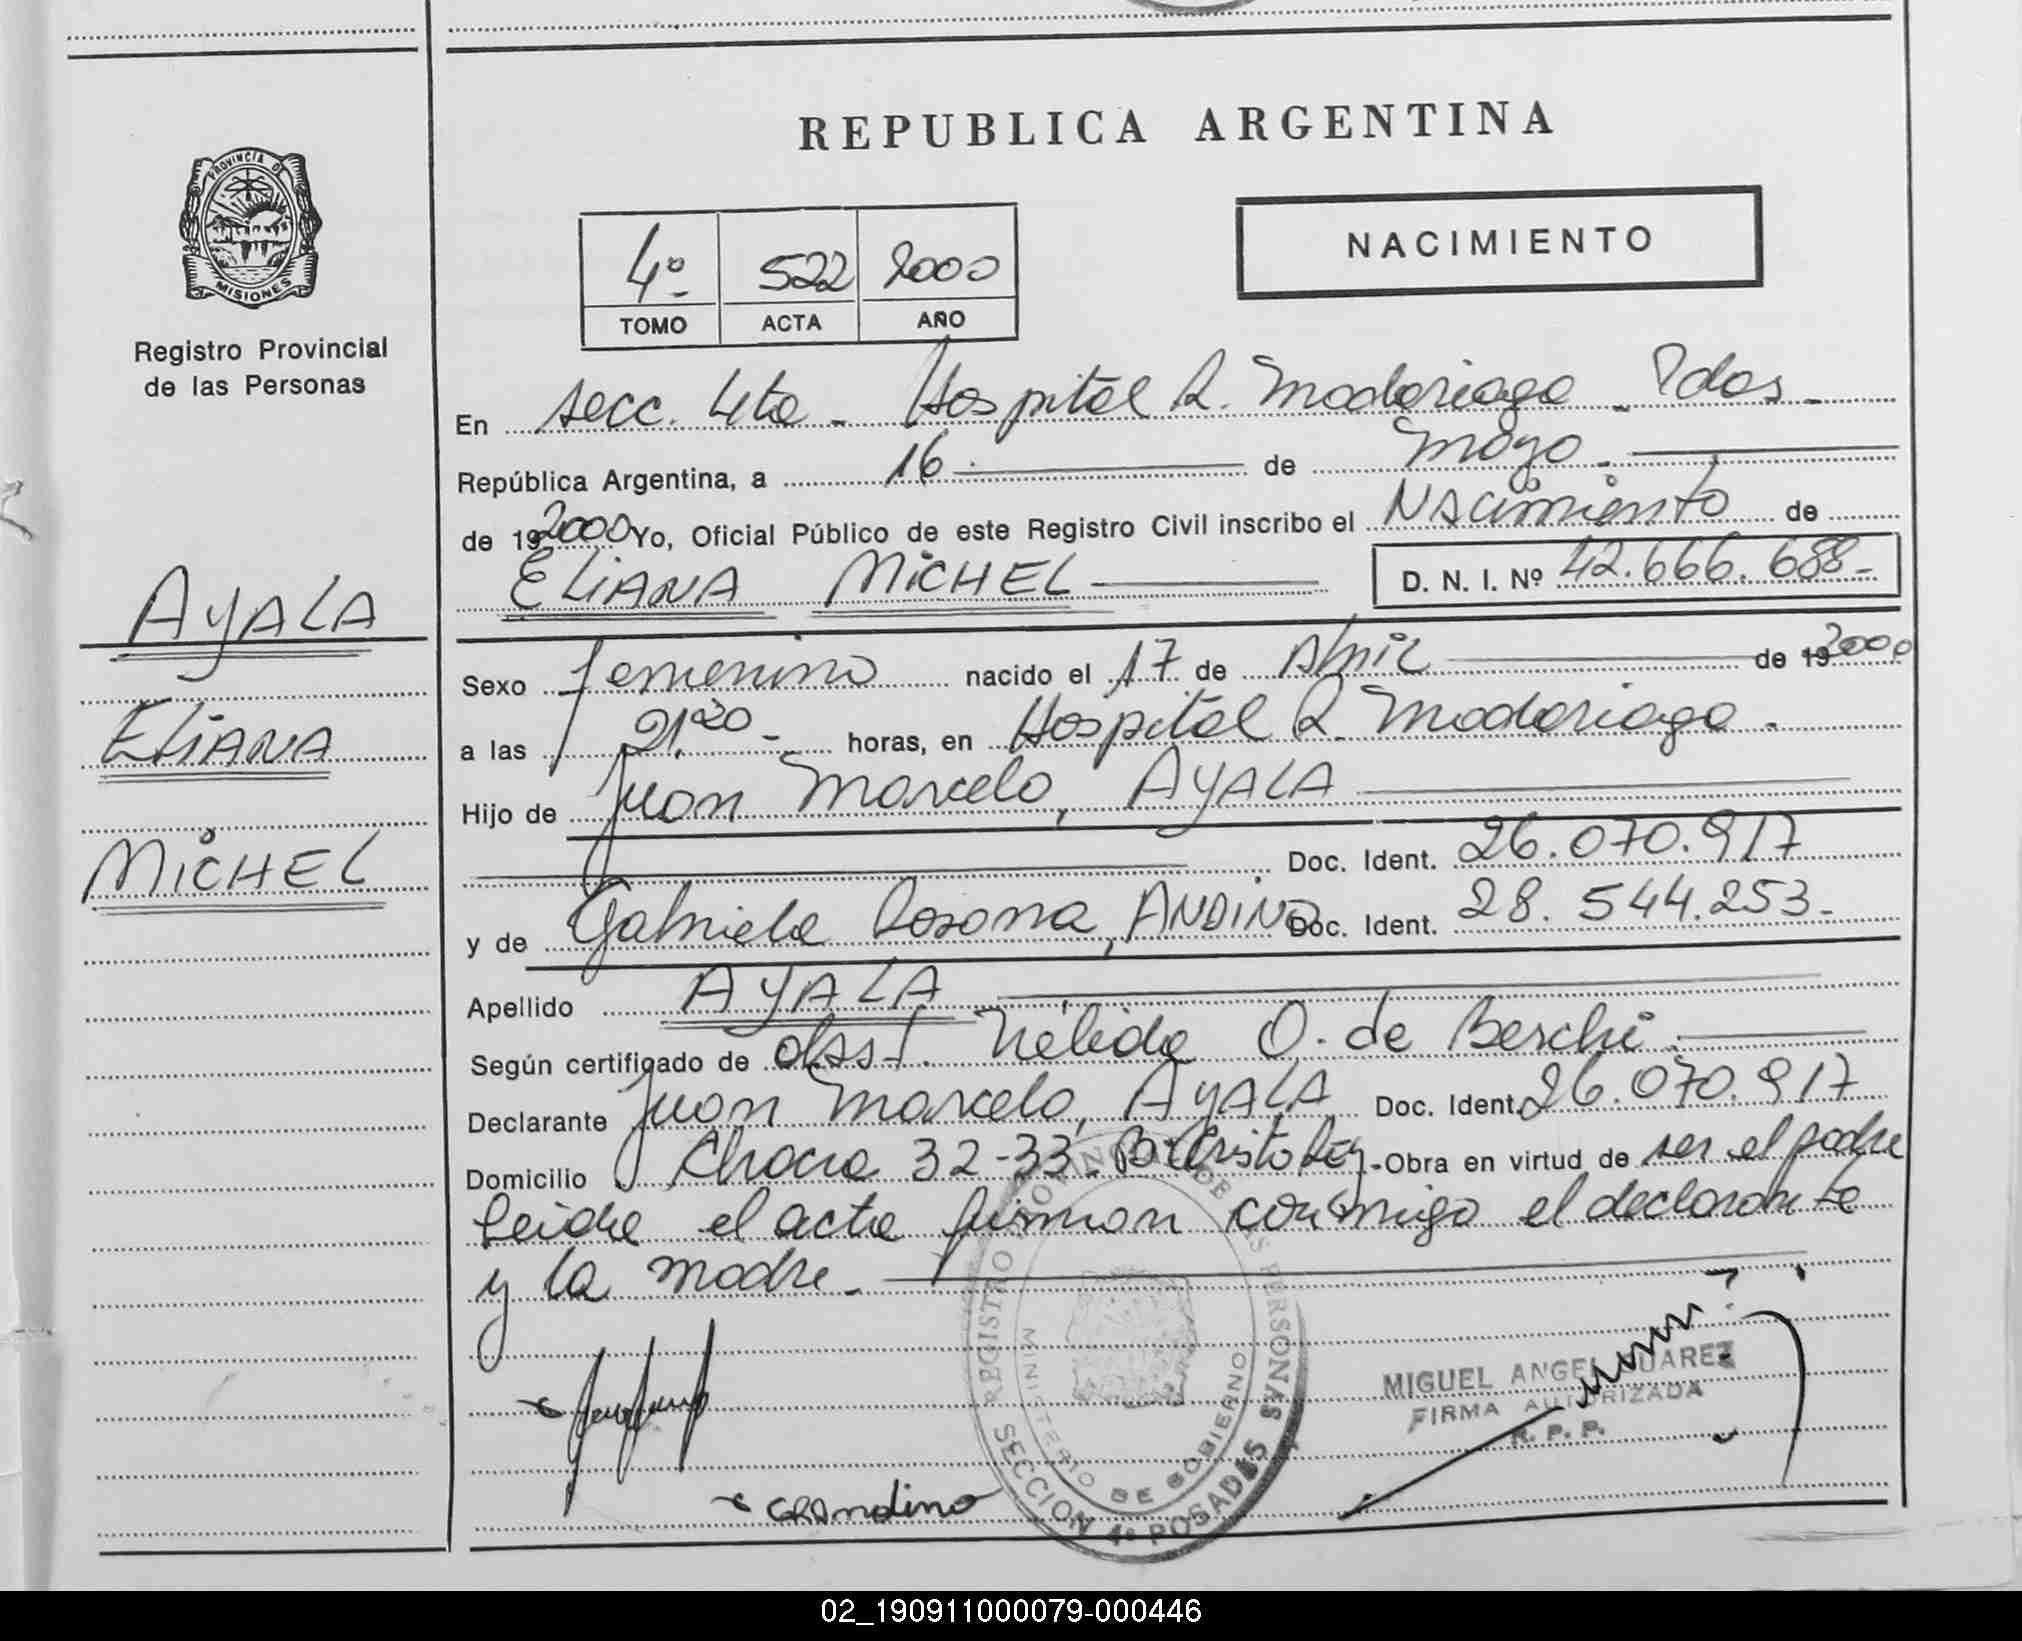 REPUBLICA ARGENTINA
PROVINCIA DE
MISIONES
Registro Provincial
de las Personas
4º 522 2000
TOMO ACTA AÑO
NACIMIENTO
AYALA
ELIANA
MICHEL
En secc. 4ta - Hospital R. Madariaga - Pdas -
República Argentina, a 16 de mayo
de 19 2000 Yo, Oficial Público de este Registro Civil inscribo el Nacimiento de
ELIANA MICHEL D. N. I. Nº 42.666.688-
Sexo femenino nacido el 17 de Abril de 19 2000
a las 21,20 - horas, en Hospital R. Madariaga -
Hijo de Juan Marcelo, AYALA
Doc. Ident. 26.070.917
y de Gabriela Rosana, ANDINO Doc. Ident. 28.544.253-
Apellido AYALA
Según certificado de obst. Nélida O. de Berchi
Declarante Juan Marcelo, AYALA Doc. Ident. 26.070.917
Domicilio Chacra 32-33 - Bº Cristo Rey - Obra en virtud de ser el padre
Leida el acta firman conmigo el declarante
y la madre -
REGISTRO PROVINCIAL DE LAS PERSONAS
MINISTERIO DE GOBIERNO
SECCION 4º POSADAS
MIGUEL ANGEL SUAREZ
FIRMA AUTORIZADA
R. P. P.
GRAndino
02_190911000079-000446